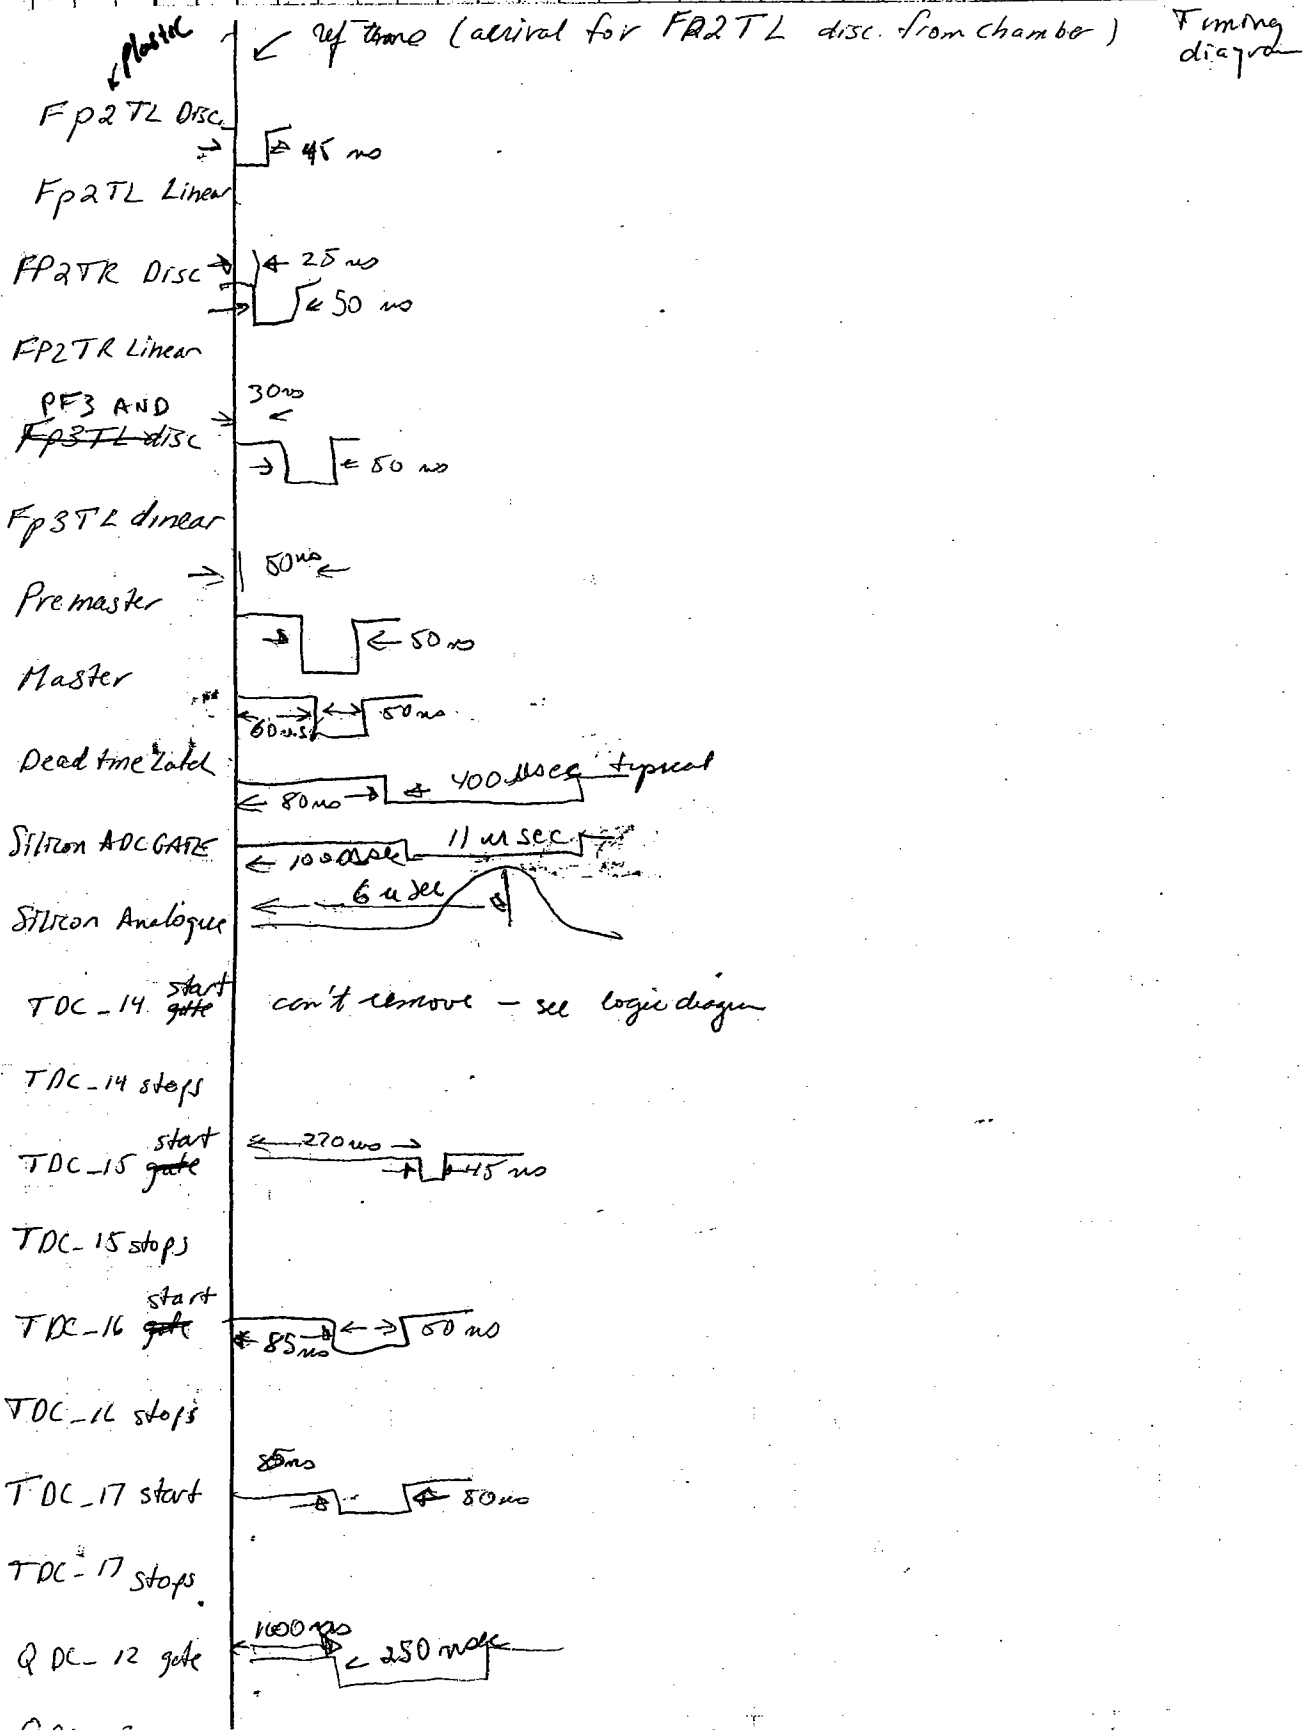 ref time (arrival for FP2TL disc. from chamber)
Timing
diagram
plastic
Fp2TL Disc.
45 ns
Fp2TL Linear
FP2TR Disc
25 ns
50 ns
FP2TR Linear
PF3 AND
30ns
Fp3TL disc
50 ns
Fp3TL linear
50ns
Premaster
50 ns
Master
60 ns
50 ns
Dead time Latch
80 ns
400 µsec typical
Silicon ADC GATE
100 nsec
11 µ sec
Silicon Analogue
6 µ sec
TDC-14 start
gate
can't remove - see logic diagram
TDC-14 stops
start
TDC-15 gate
270 ns
45 ns
TDC-15 stops
start
TDC-16 gate
85 ns
50 ns
TDC-16 stops
85ns
TDC-17 start
50 ns
TDC-17 stops
QDC-12 gate
250 nsec